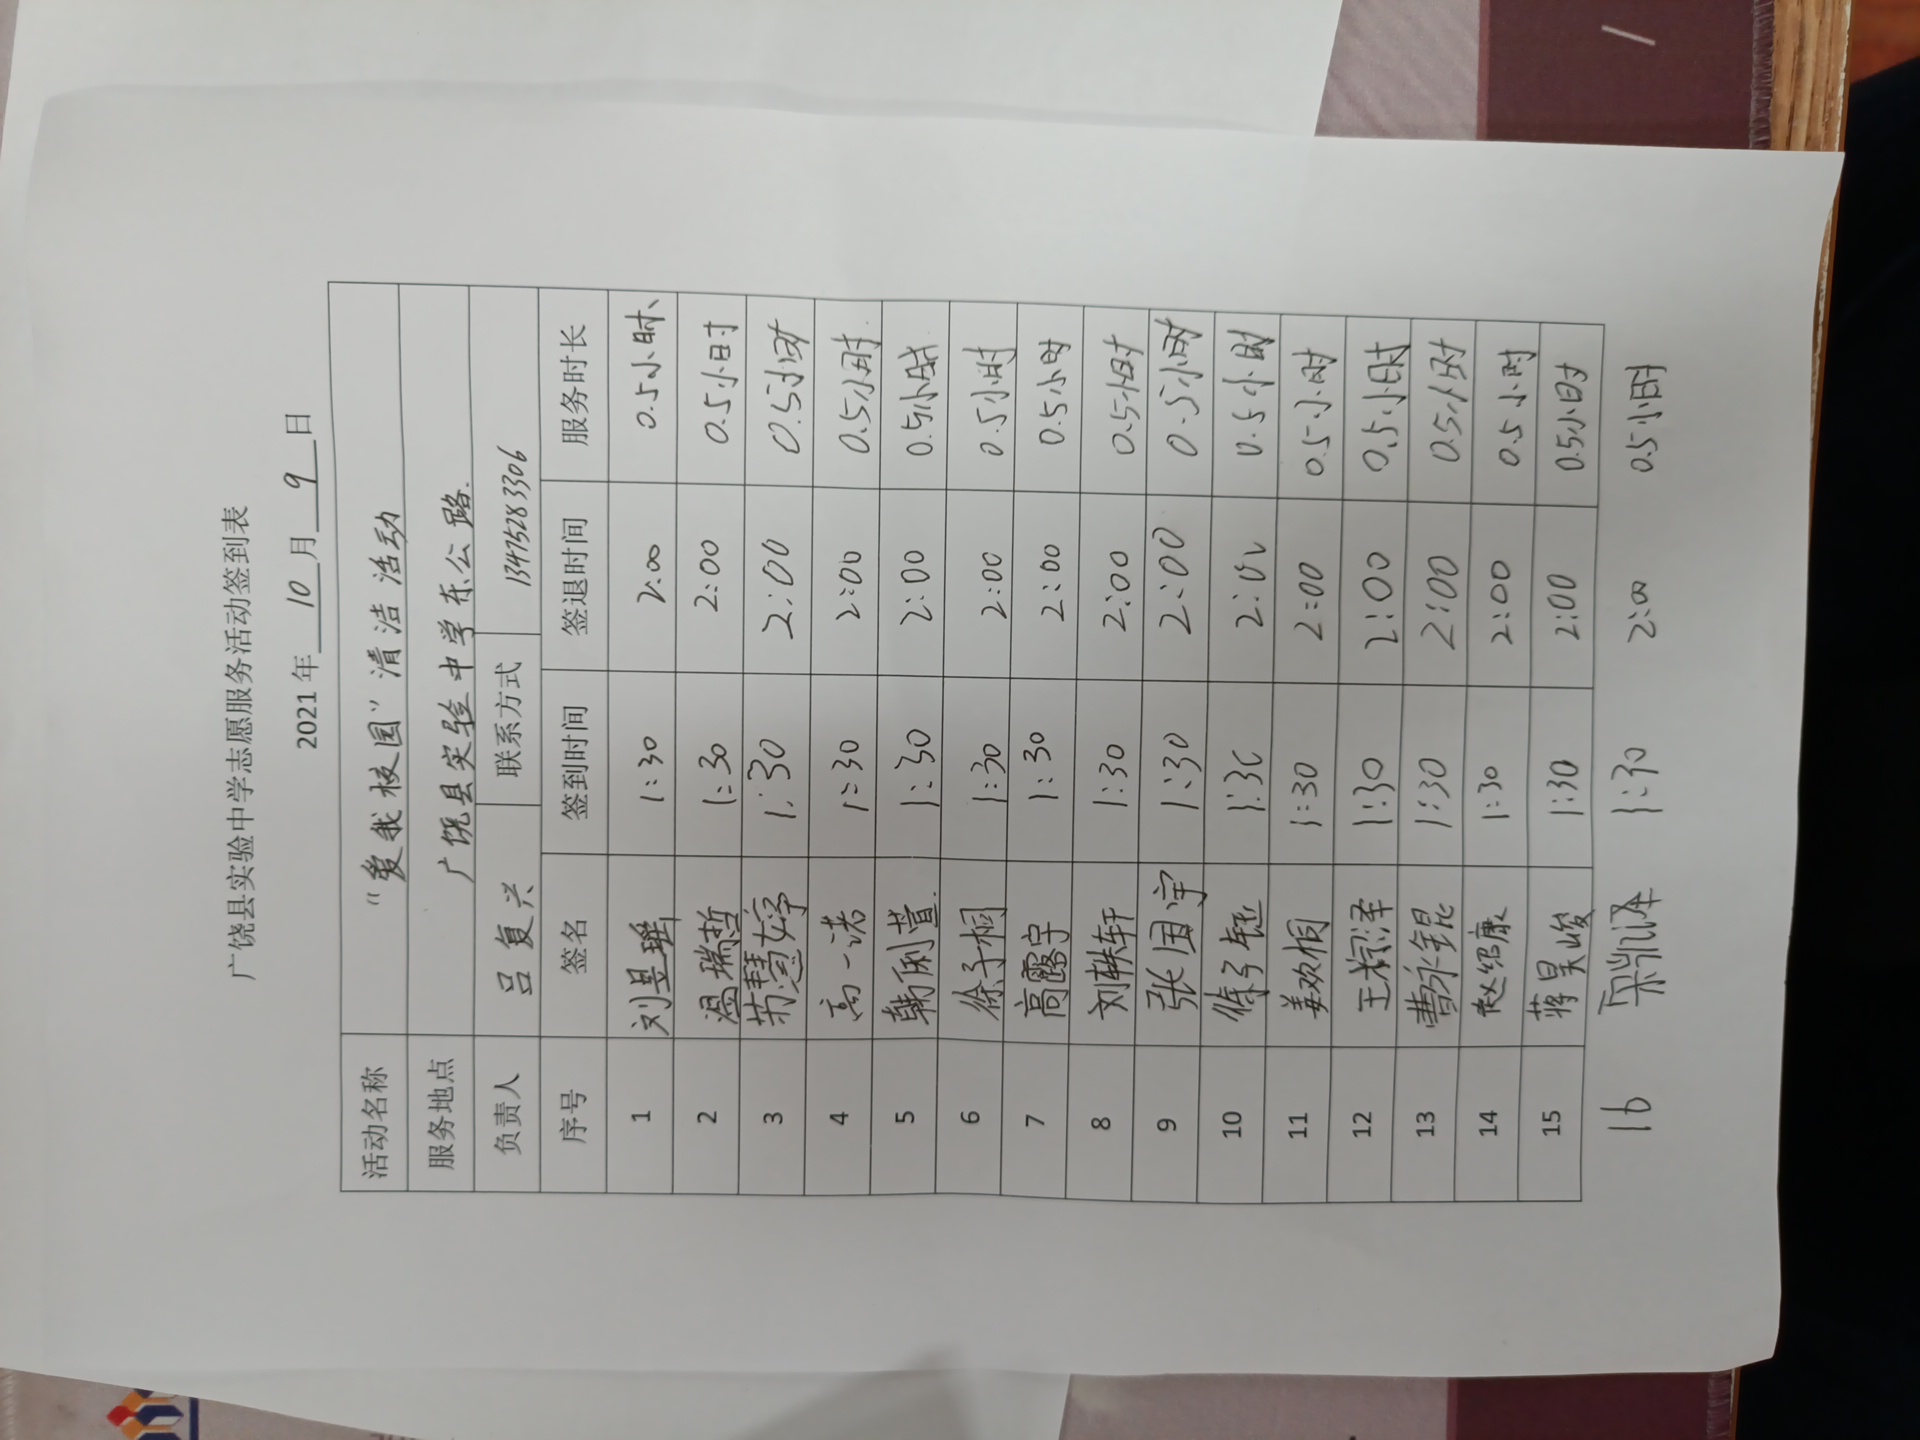 广饶县实验中学志愿服务活动签到表
2021年 10 月 9 日
活动名称 “爱我校园”清洁活动
服务地点 广饶县实验中学东公路.
负责人 吕复兴 联系方式 13475283306
序号 签名 签到时间 签退时间 服务时长
1 刘昱瑶 1:30 2:00 0.5小时、
2 温瑞哲 1:30 2:00 0.5小时
3 荣慧婷 1:30 2:00 0.5小时
4 高一诺 1:30 2:00 0.5小时.
5 韩俐萱. 1:30 2:00 0.5小时.
6 徐子桐 1:30 2:00 0.5小时
7 高露宇 1:30 2:00 0.5小时
8 刘轶轩 1:30 2:00 0.5小时
9 张国宇 1:30 2:00 0.5小时
10 1:30 2:00 0.5小时
11 姜欢桐 1:30 2:00 0.5小时
12 1:30 2:00 0.5小时
13 曹永锟 1:30 2:00 0.5小时
14 赵绍康 1:30 2:00 0.5小时
15 蒋昊峻 1:30 2:00 0.5小时
16 宋凯泽 1:30 2:00 0.5小时